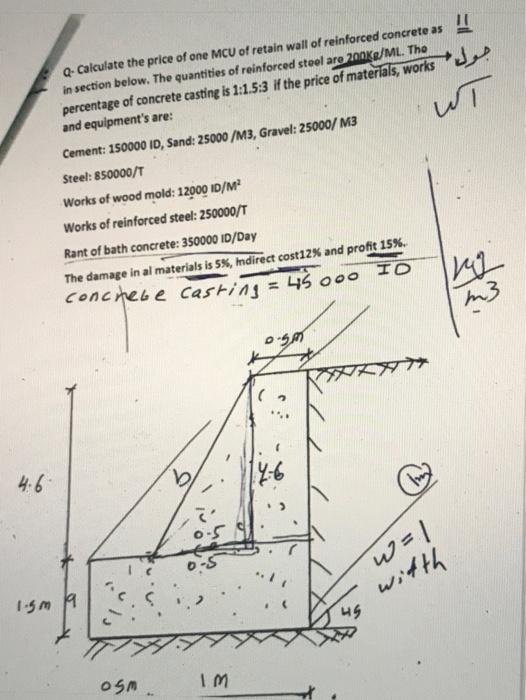 11
Q- Calculate the price of one MCU of retain wall of reinforced concrete as
in section below. The quantities of reinforced steel are 200Kg/ML. The
percentage of concrete casting is 1:1.5:3 if the price of materials, works
and equipment's are:
WT
Cement: 150000 ID, Sand: 25000 /M3, Gravel: 25000/ M3
Steel: 850000/T
Works of wood mold: 12000 ID/M²
Works of reinforced steel: 250000/T
Rant of bath concrete: 350000 ID/Day
The damage in al materials is 5%, Indirect cost12% and profit 15%.
casting = 45000 ID
kg
m3
0.5m
4.6
b
4.6
0.5
0.5
1m
w=1
width
1.5m
45
0.5m
1M